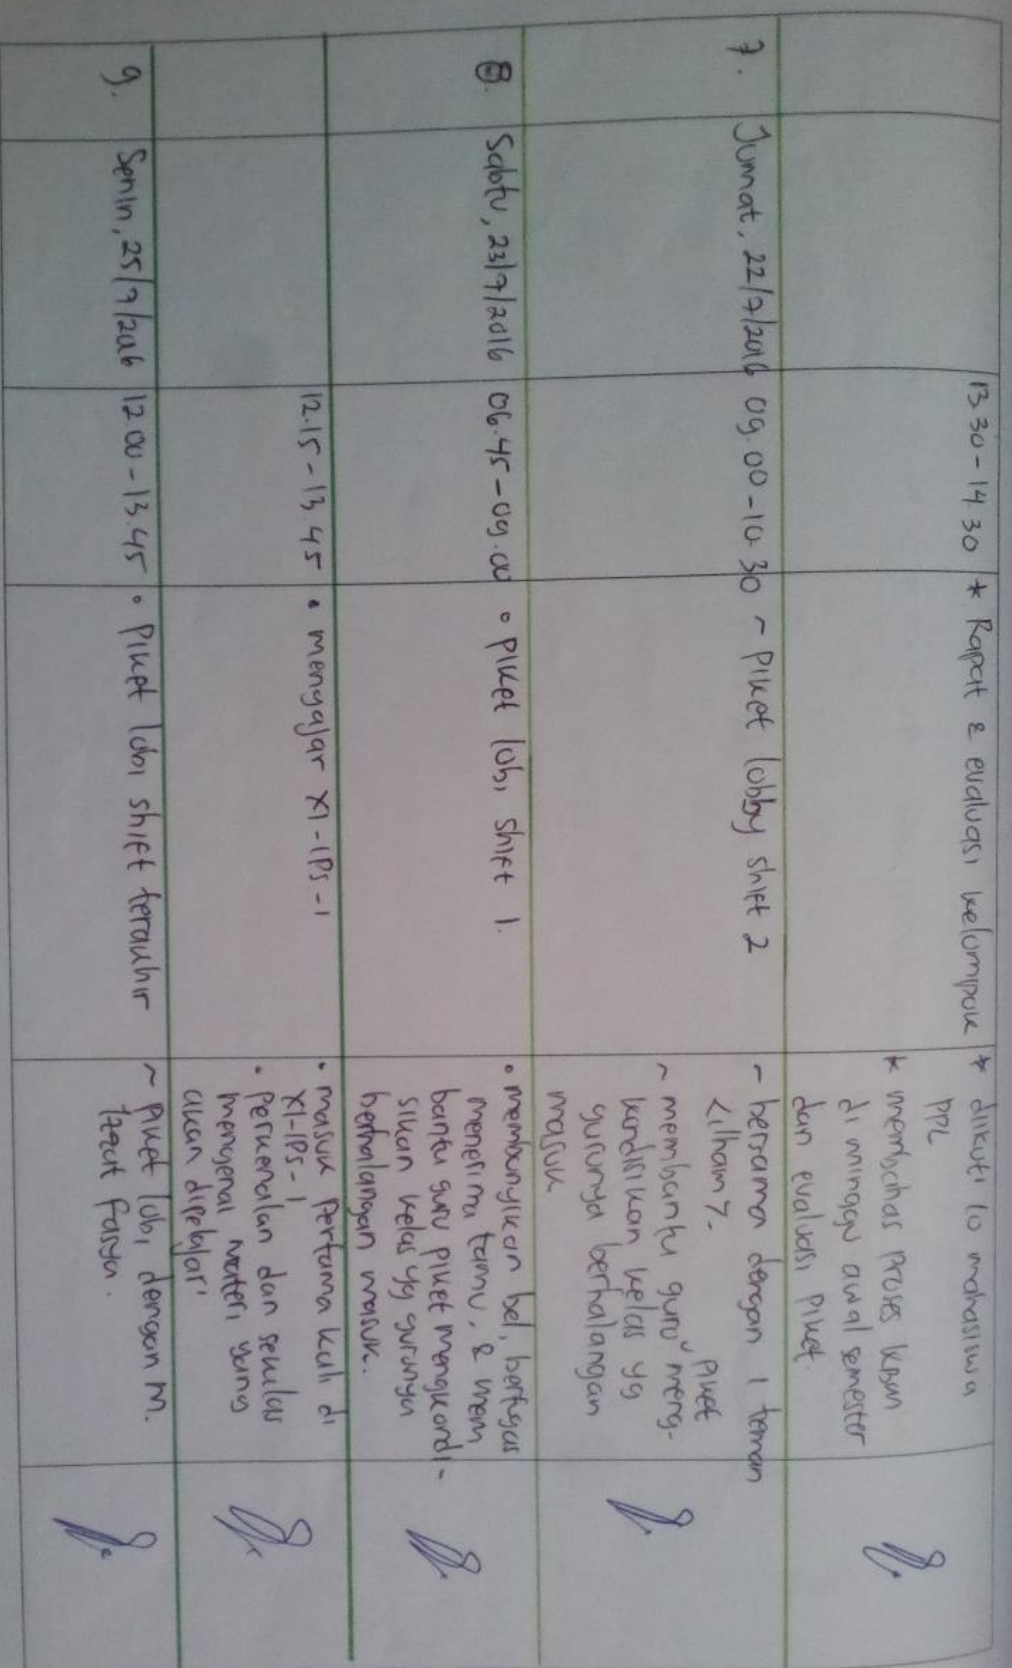 13.30-14.30 * Rapat & evaluasi kelompok * dikuti 10 mahasiswa
PPL
* membahas proses KBM
di minggu awal semester
dan evaluasi piket.
7. Jumat, 22/7/2016 09.00-10.30 ~ Piket lobby shift 2 - bersama dengan 1 teman
<ilham>.
~ membantu guru piket meng-
kondisikan kelas yg
gurunya berhalangan
masuk
8. Sabtu, 23/7/2016 06.45-09.00 • piket lobi shift 1. • membunyikan bel, bertugas
menerima tamu, & mem
bantu guru piket mengkondi-
sikan kelas yg gurunya
berhalangan masuk.
12.15-13.45 • mengajar XI-IPS-1 • masuk pertama kali di
XI-IPS-1
• Perkenalan dan sekilas
mengenai materi yang
akan dipelajari
9. Senin, 25/7/2016 12.00-13.45 • Piket lobi shift terakhir ~ piket lobi dengan M.
Izzut fasya.